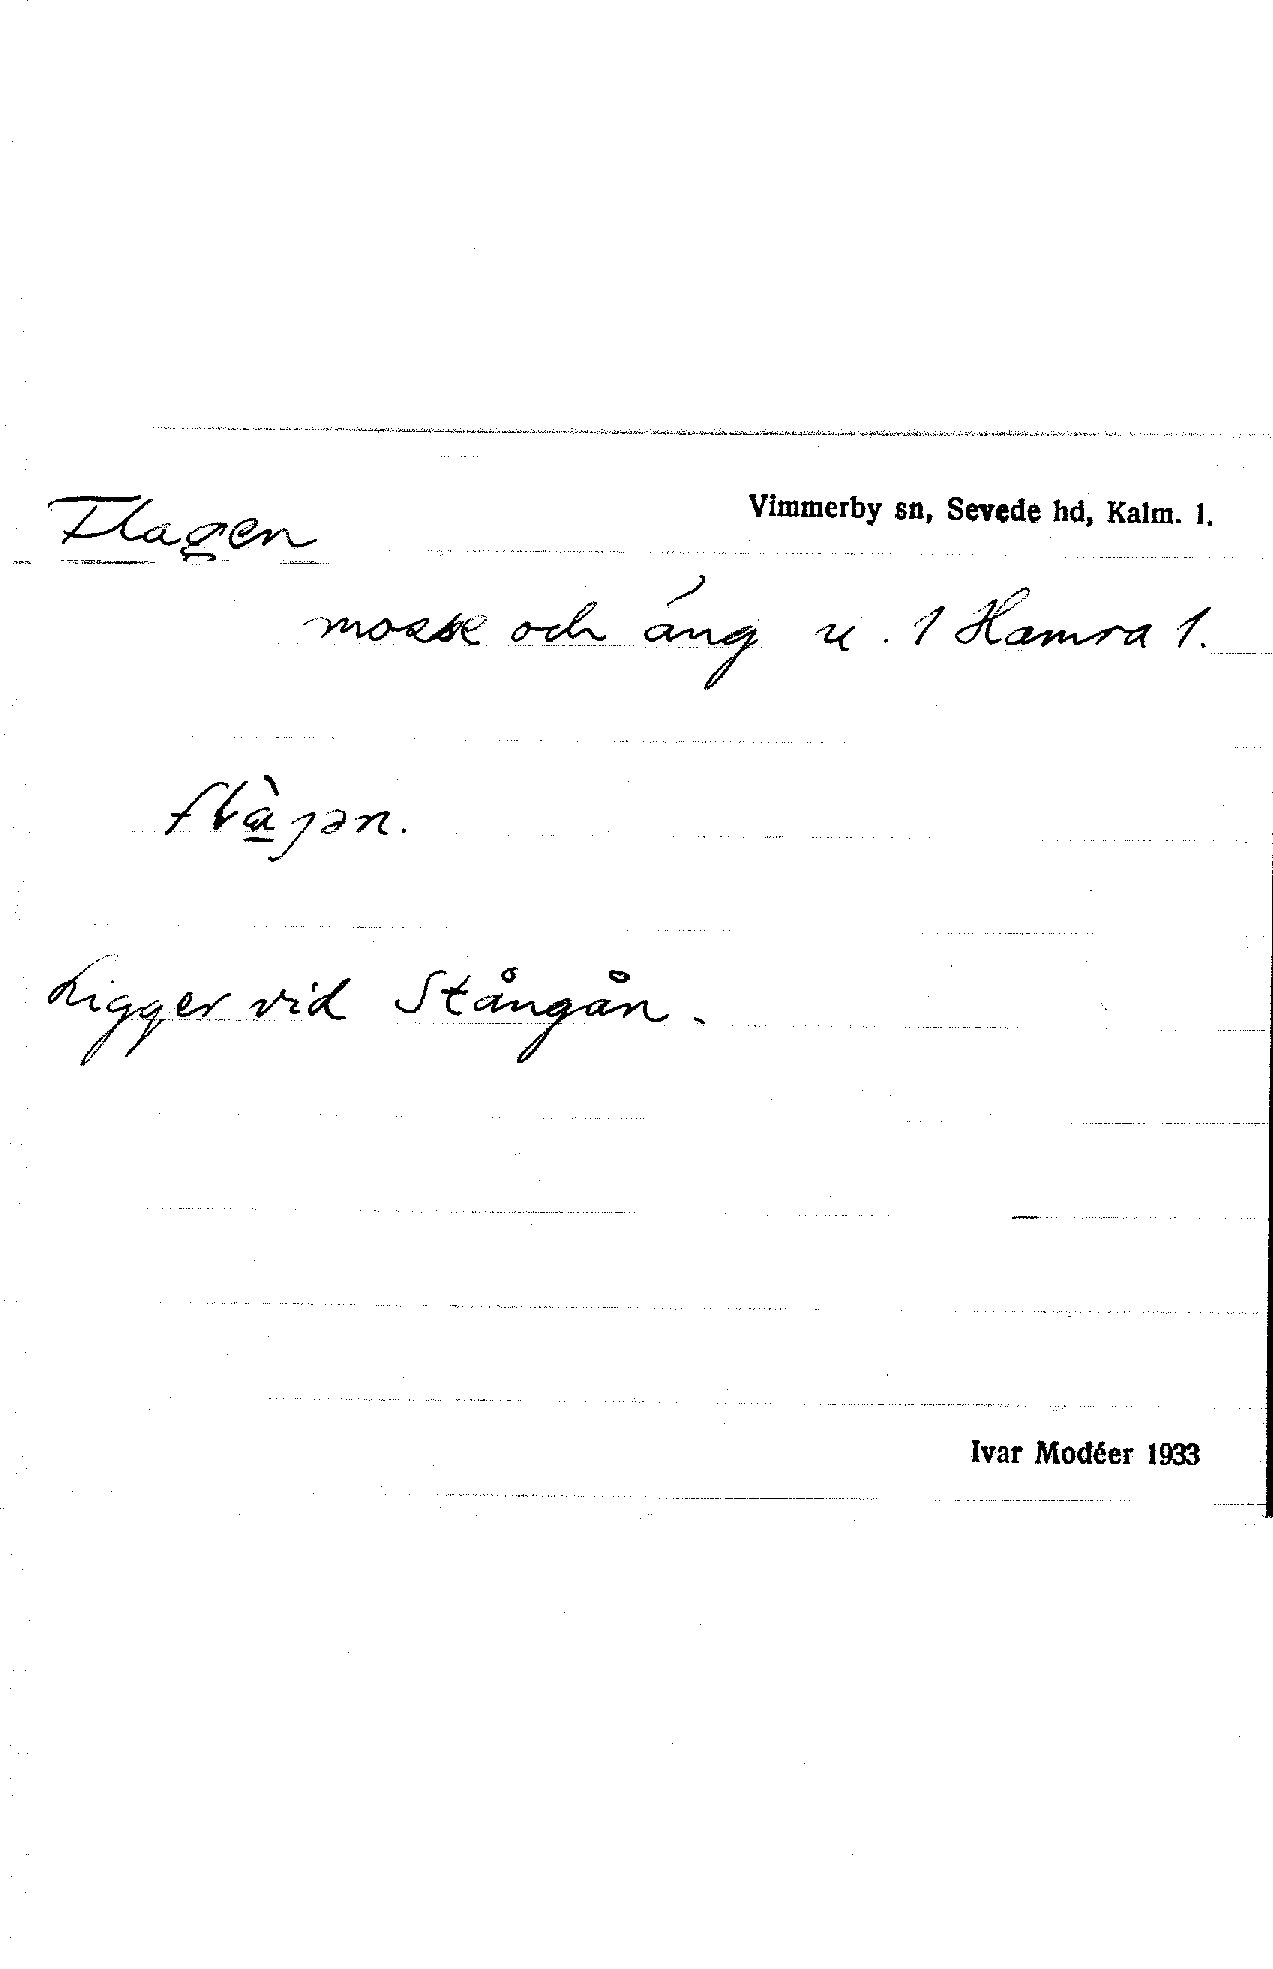 Flagen
Vimmerby sn, Sevede hd, Kalm. l.
mosse och äng u. 1 Hamra 1.
flàgən.
Ligger vid Stångån.
Ivar Modéer 1933